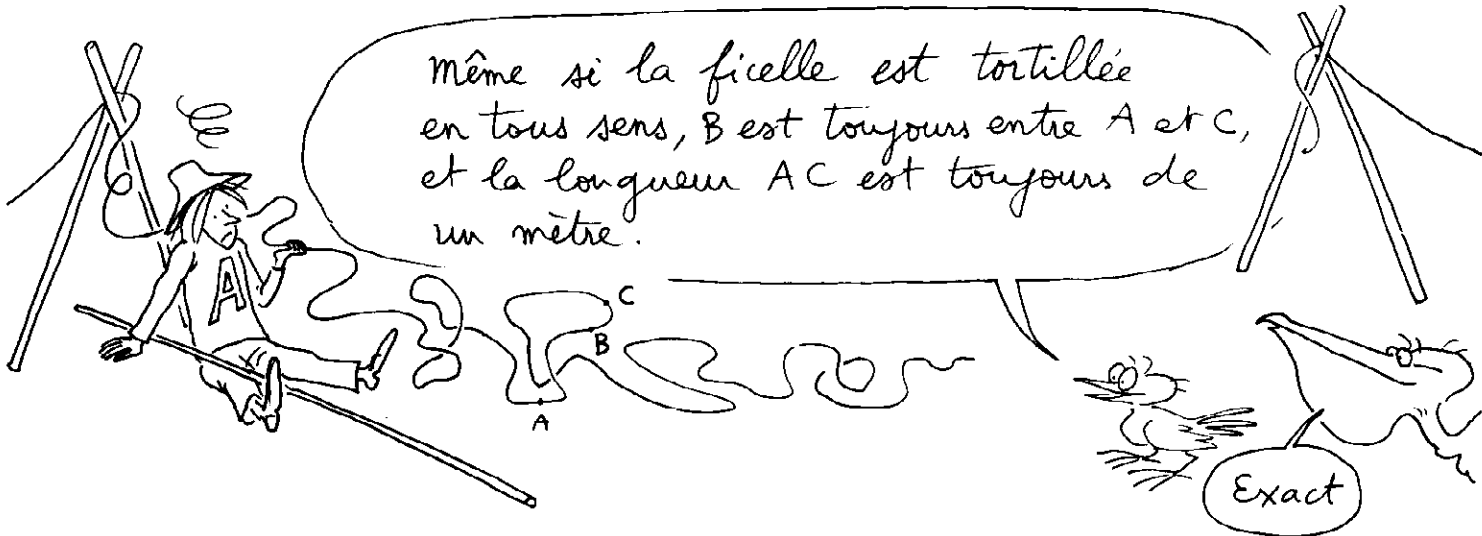 Même si la ficelle est tortillée
en tous sens, B est toujours entre A et C,
et la longueur AC est toujours de
un mètre.
A
C
B
A
Exact